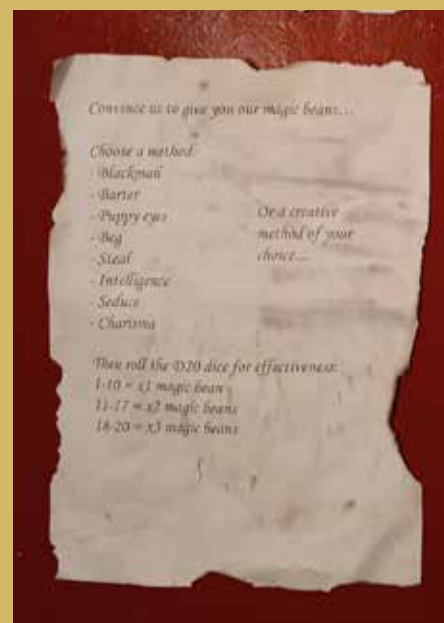 Convince us to give you our magic beans....
Choose a method:
- Blackmail
- Barter
- Puppy eyes
- Beg
- Steal
- Intelligence
- Seduce
- Charisma
Or a creative
method of your
choice....
Then roll the D20 dice for effectiveness:
1-10 = x1 magic bean
11-17 = x2 magic beans
18-20 = x3 magic beans